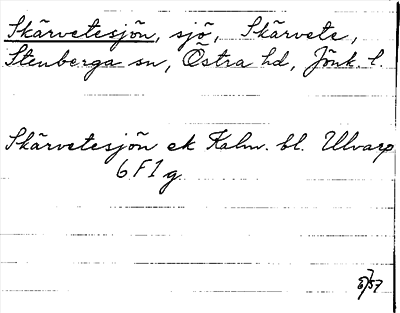 Skärvetesjön, sjö, Skärvete,
Stenberga sn, Östra hd, Jönk. l.
Skärvetesjön ek Kalm. bl. Ulvarp
6 F 1 g